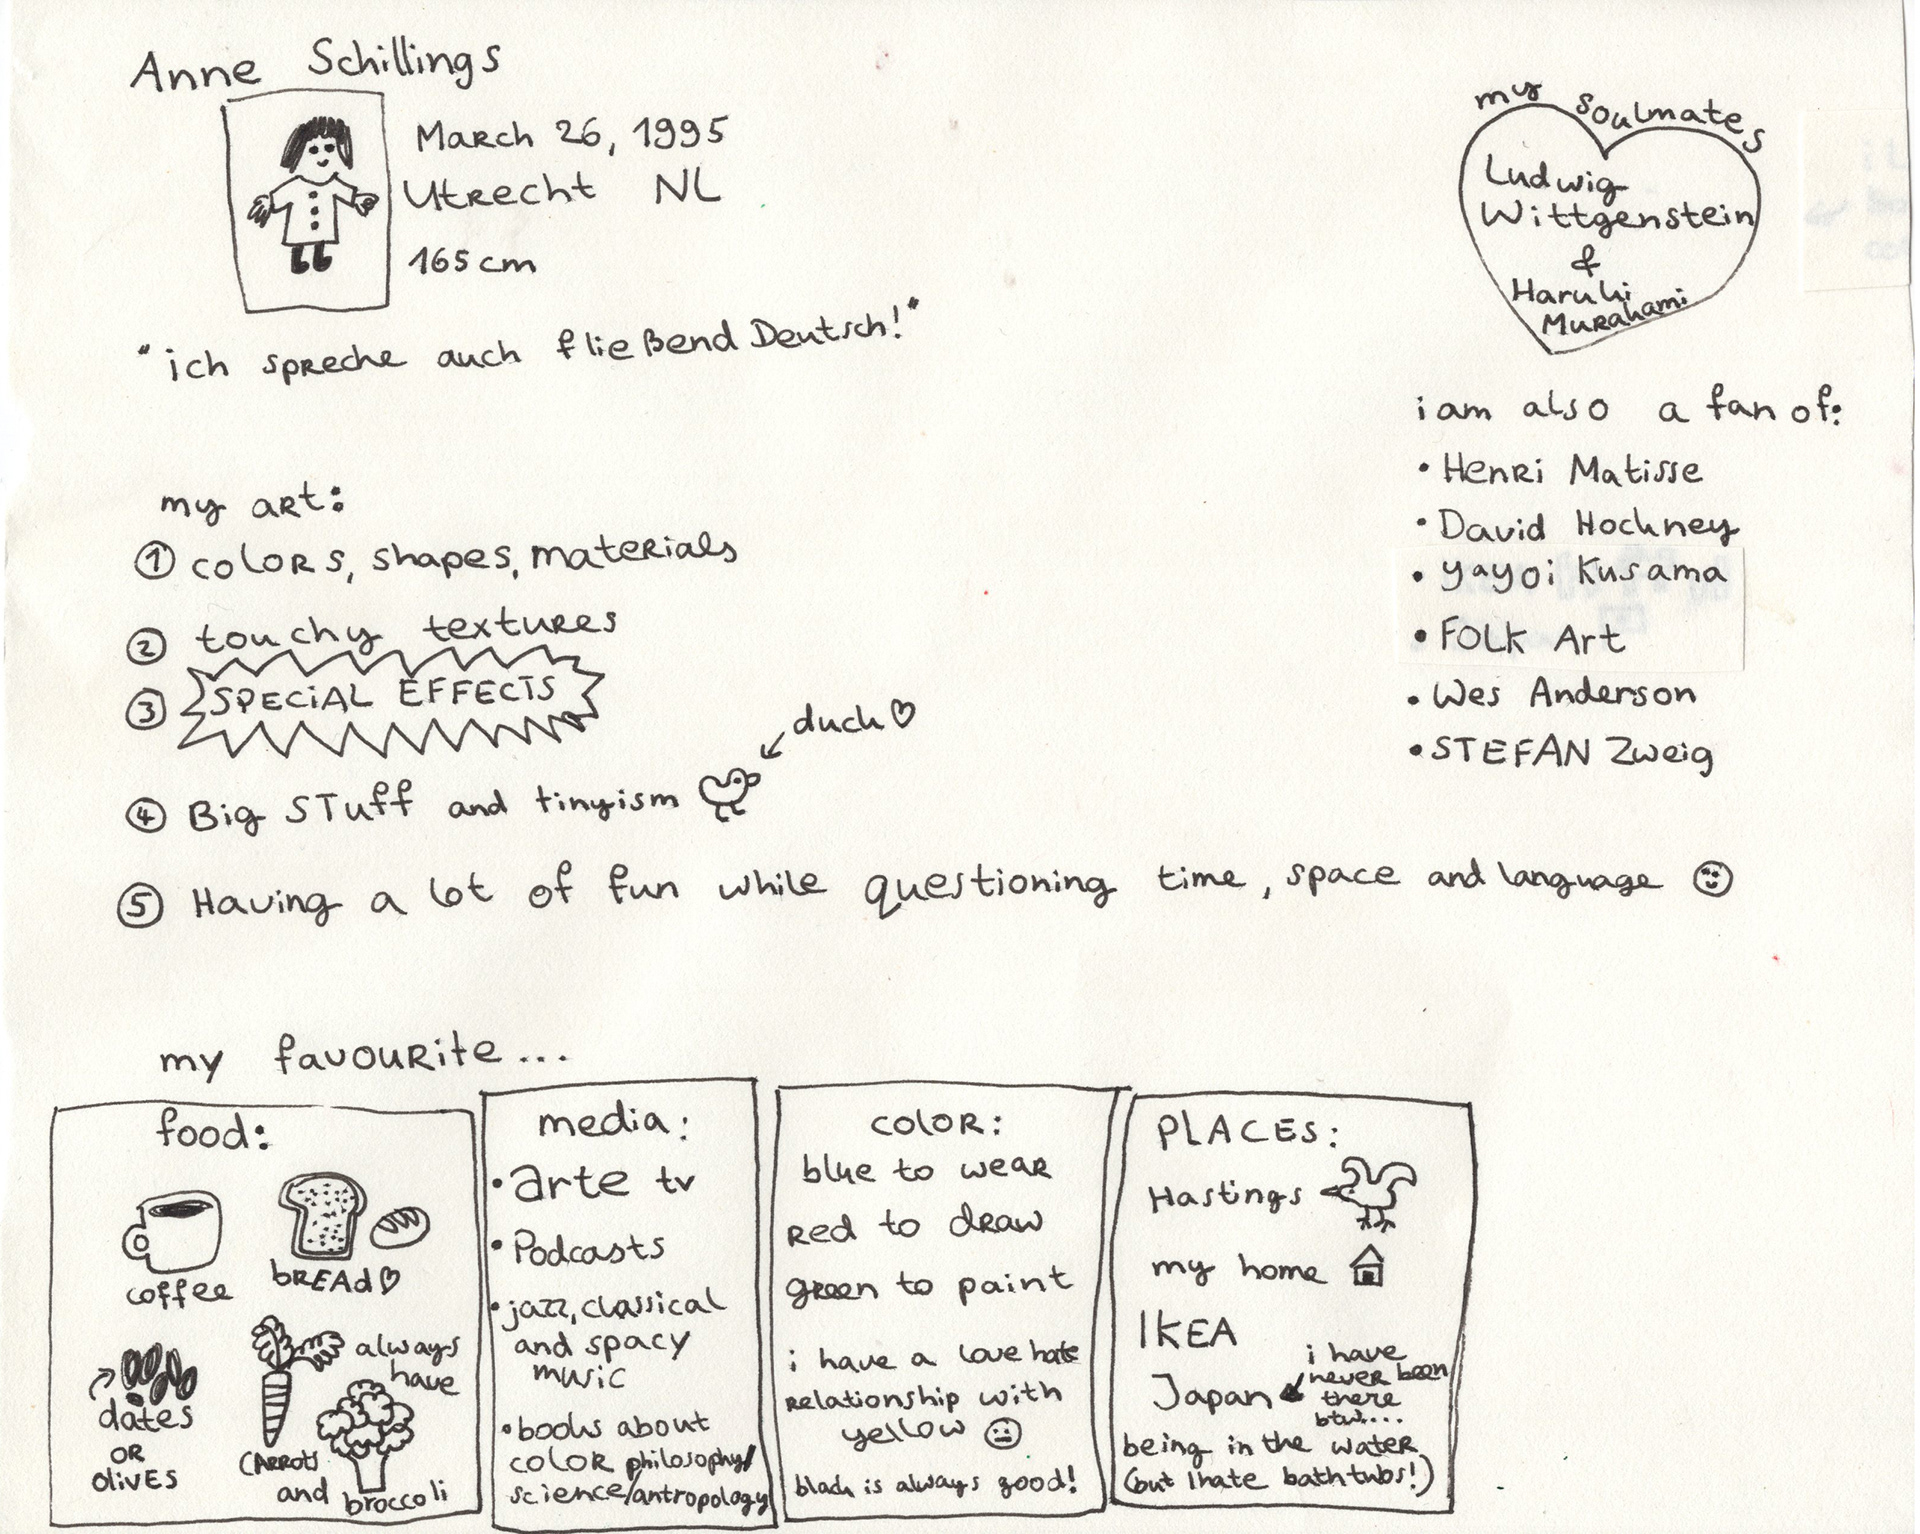 Anne Schillings
March 26, 1995
Utrecht NL
165 cm
"ich spreche auch fließend Deutsch!"
my soulmates
Ludwig
Wittgenstein
&
Haruki
Murakami
i am also a fan of:
• Henri Matisse
• David Hockney
• yayoi Kusama
• FOLK Art
• Wes Anderson
• STEFAN Zweig
my art:
① colors, shapes, materials
② touchy textures
③ SPECIAL EFFECTS
duck ♡
④ Big STuff and tinyism
⑤ Having a lot of fun while questioning time, space and language ☺
my favourite...
food:
coffee
bREAd ♡
dates
OR
olives
always
have
CARROTS
and broccoli
media:
• arte tv
• Podcasts
• jazz, classical
and spacy
music
• books about
color philosophy/
science/antropology
color:
blue to wear
red to draw
green to paint
i have a love hate
relationship with
yellow 😐
black is always good!
PLACES:
Hastings
my home
IKEA
Japan
i have
never been
there
btw....
being in the water
(but I hate bathtubs!)